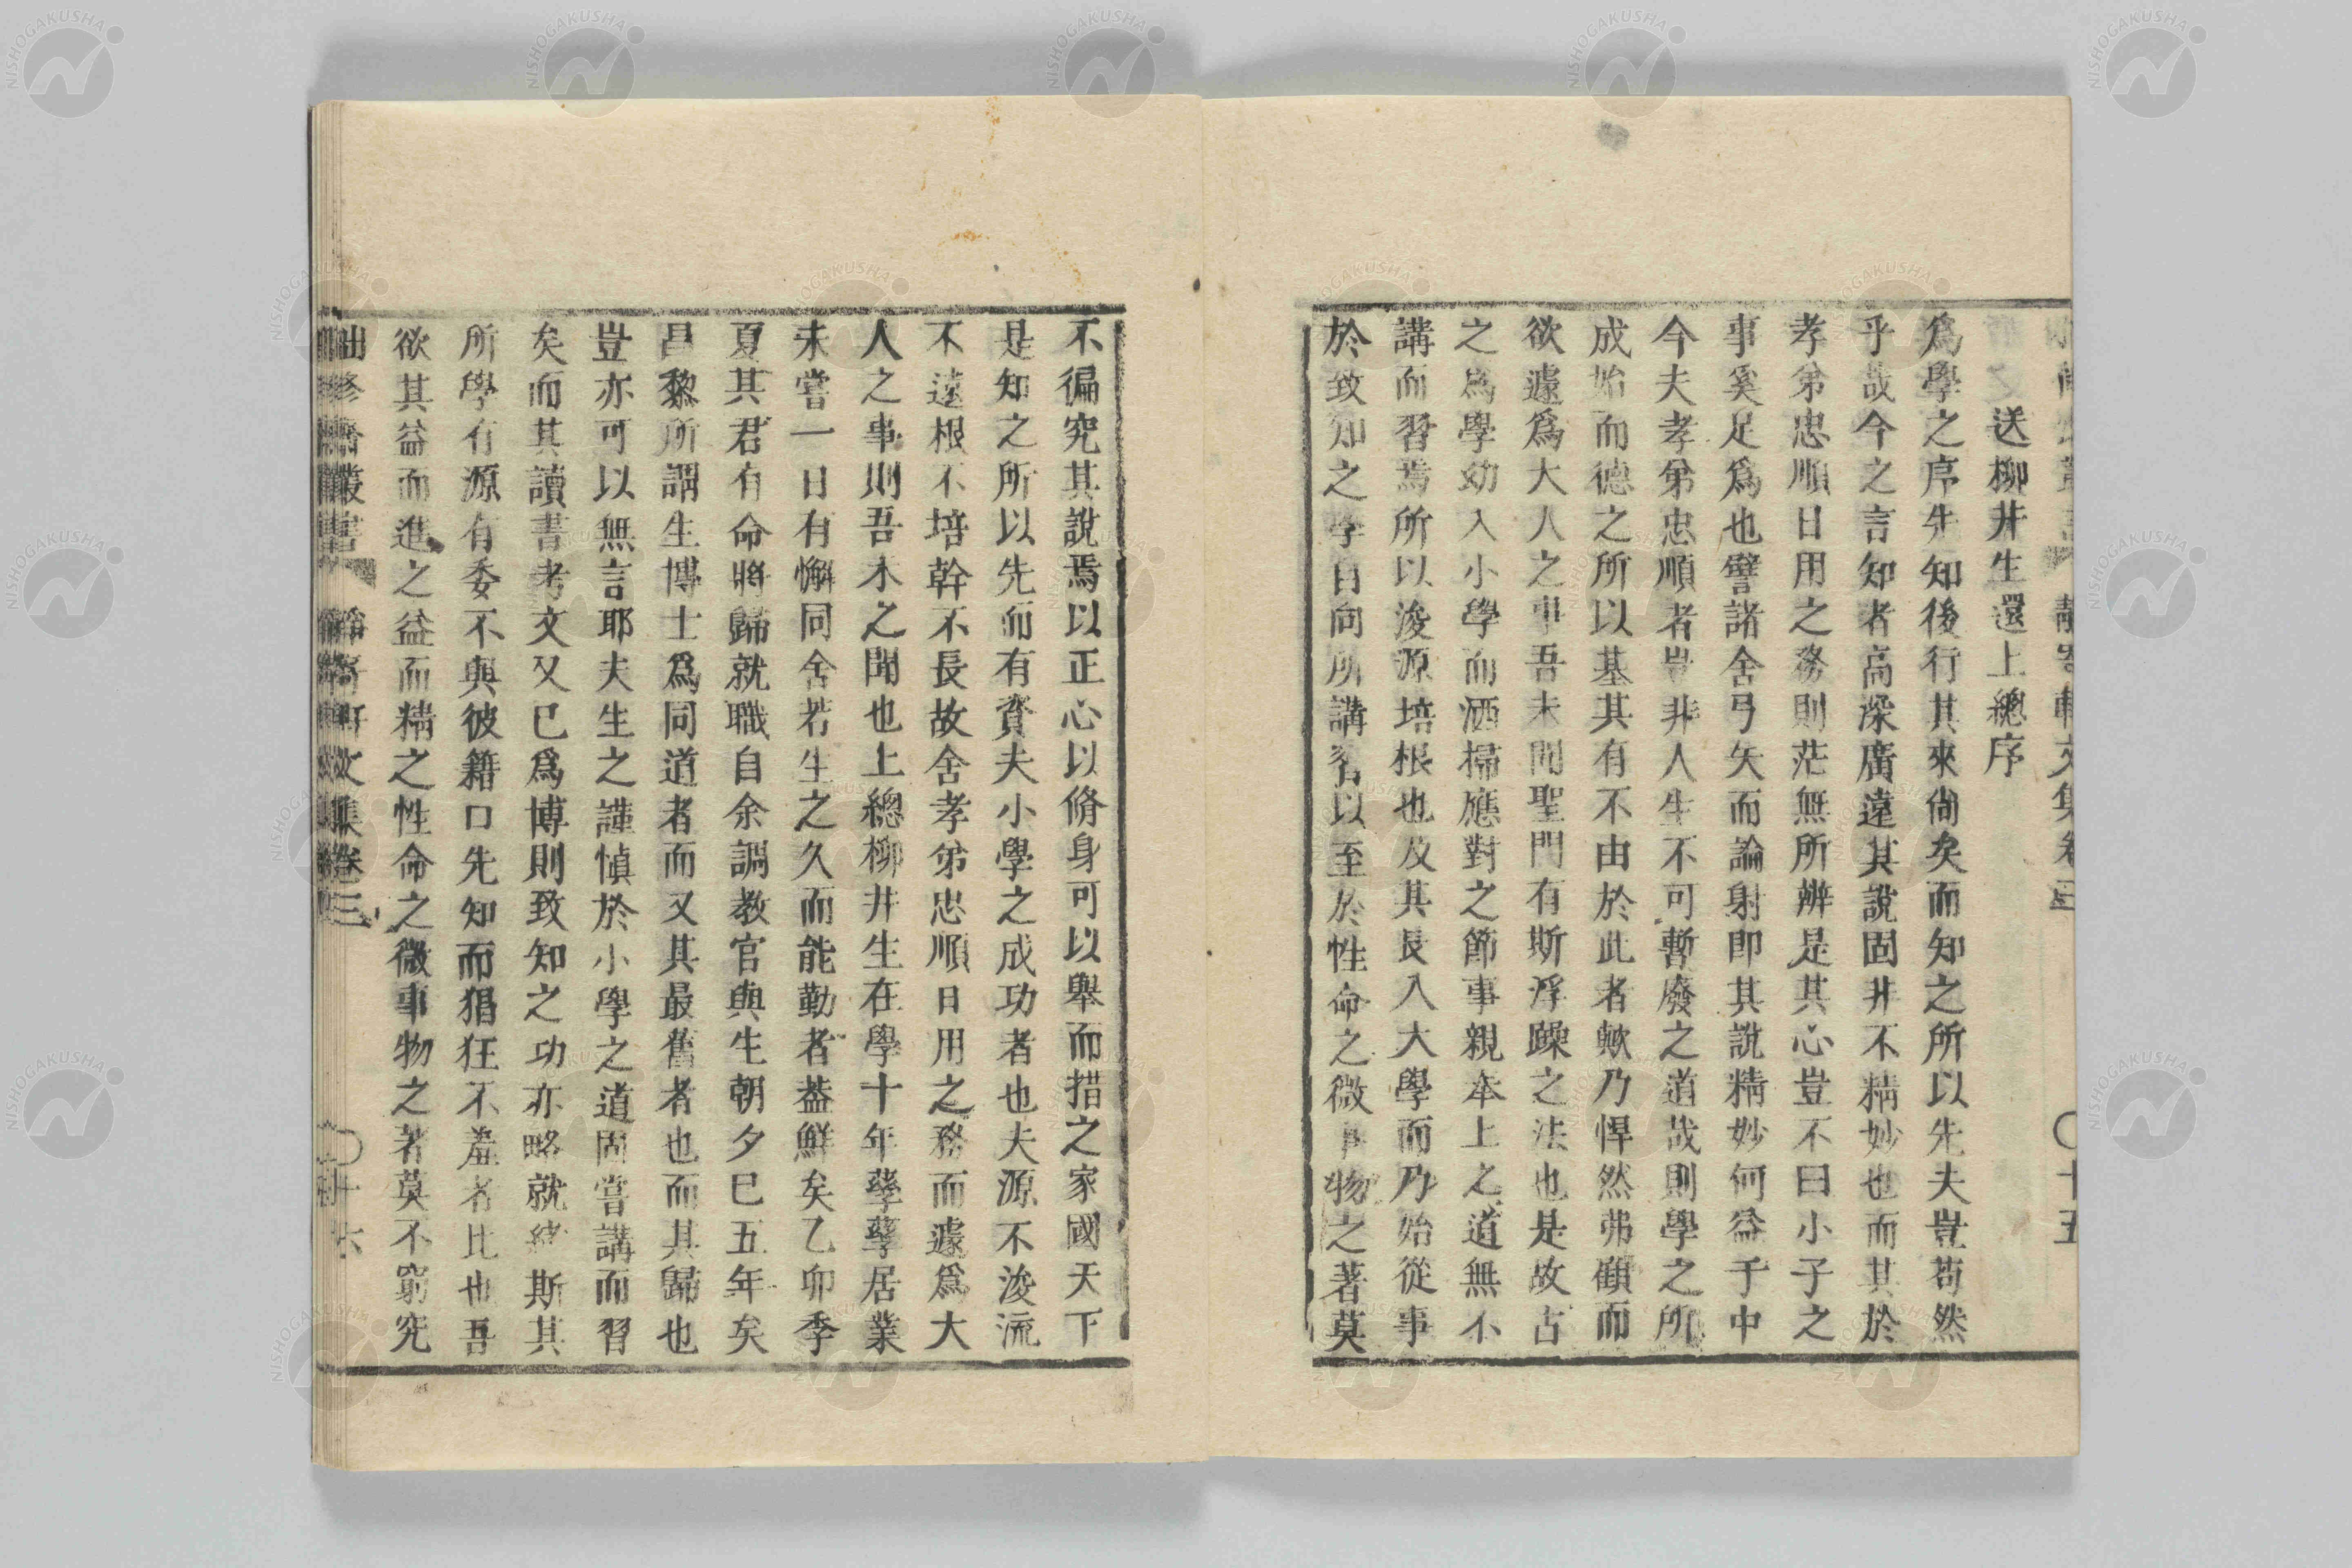 送柳井生還上總序
爲學之序先知後行其來尙矣而知之所以先夫豈苟然
乎哉今之言知者高深廣遠其說固井不精妙也而其於
孝弟忠順日用之務則茫無所辨是其心豈不曰小子之
事奚足爲也譬諸舍弓矢而論射卽其說精妙何益于中
今夫孝弟忠順者豈非人生不可暫廢之道哉則學之所
成始而德之所以基其有不由於此者歟乃悍然弗顧而
欲遽爲大人之事吾未聞聖門有斯浮躁之法也是故古
之爲學幼入小學而洒掃應對之節事親奉上之道無不
講而習焉所以浚源培根也及其長入大學而乃始從事
於致知之學自向所講習以至於性命之微事物之著莫
不徧究其說焉以正心以脩身可以舉而措之家國天下
是知之所以先而有資夫小學之成功者也夫源不浚流
不遠根不培幹不長故舍孝弟忠順日用之務而遽爲大
人之事則吾未之聞也上總柳井生在學十年孳孳居業
未嘗一日有懈同舍若生之久而能勤者葢鮮矣乙卯季
夏其君有命將歸就職自余調敎官與生朝夕已五年矣
昌黎所謂生博士爲同道者而又其最舊者也而其歸也
豈亦可以無言耶夫生之謹愼於小學之道固嘗講而習
矣而其讀書考文又已爲博則致知之功亦略就緖斯其
所學有源有委不與彼籍口先知而猖狂不羞者比也吾
欲其益而進之益而精之性命之微事物之著莫不窮究